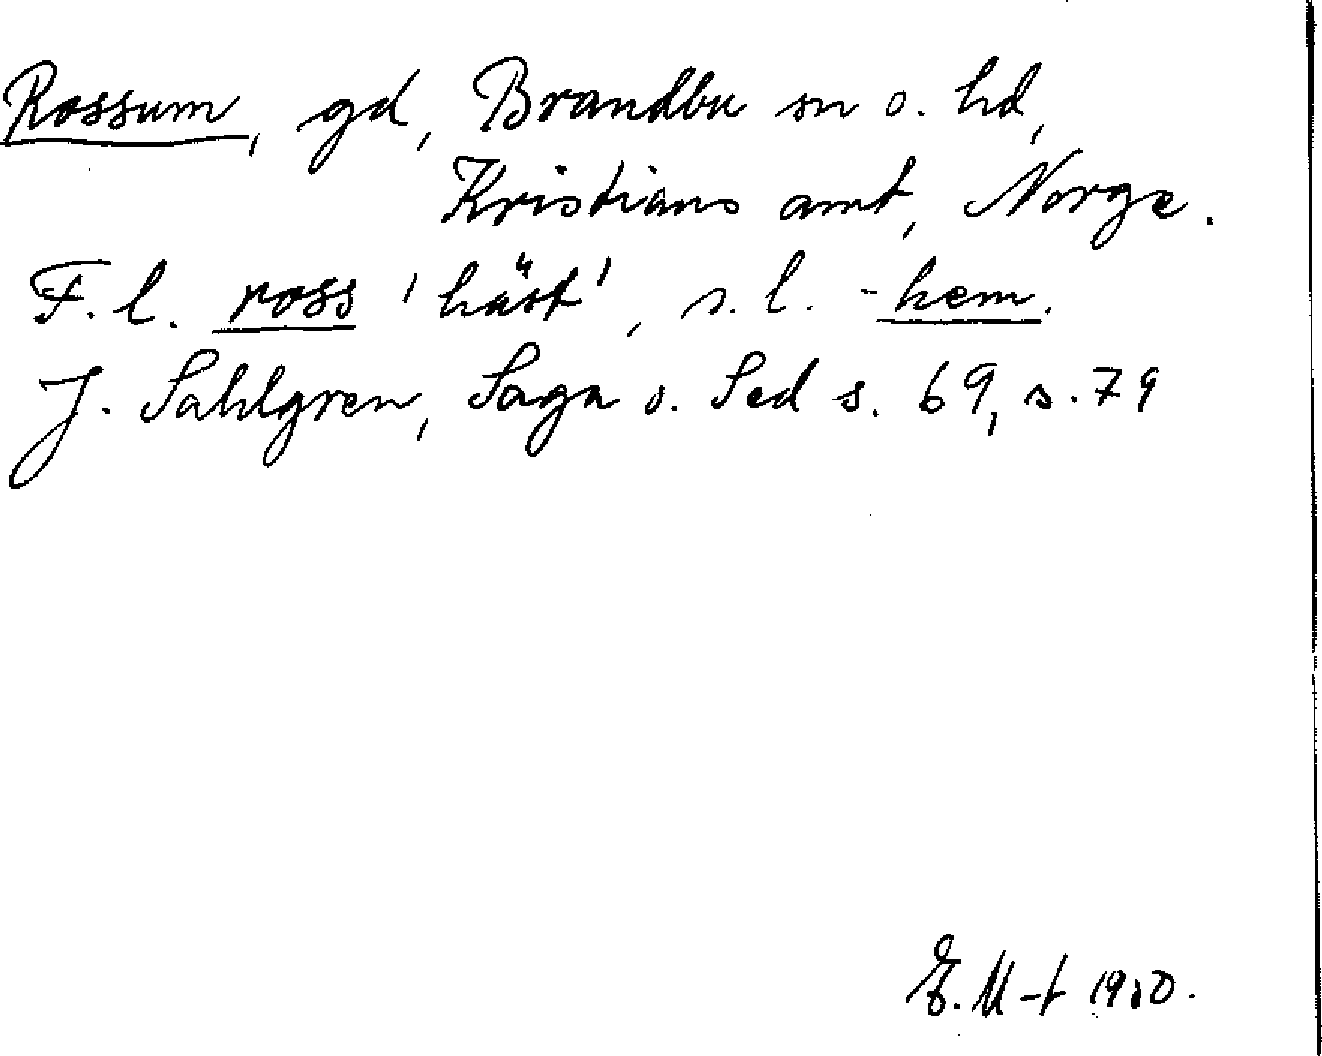 Rossum, gd, Brandbu sn o. hd,
Kristians amt, Norge.
F.l. ross 'häst', s.l. -hem.
J. Sahlgren, Saga o. Sed s. 69, s. 79
E. M-t